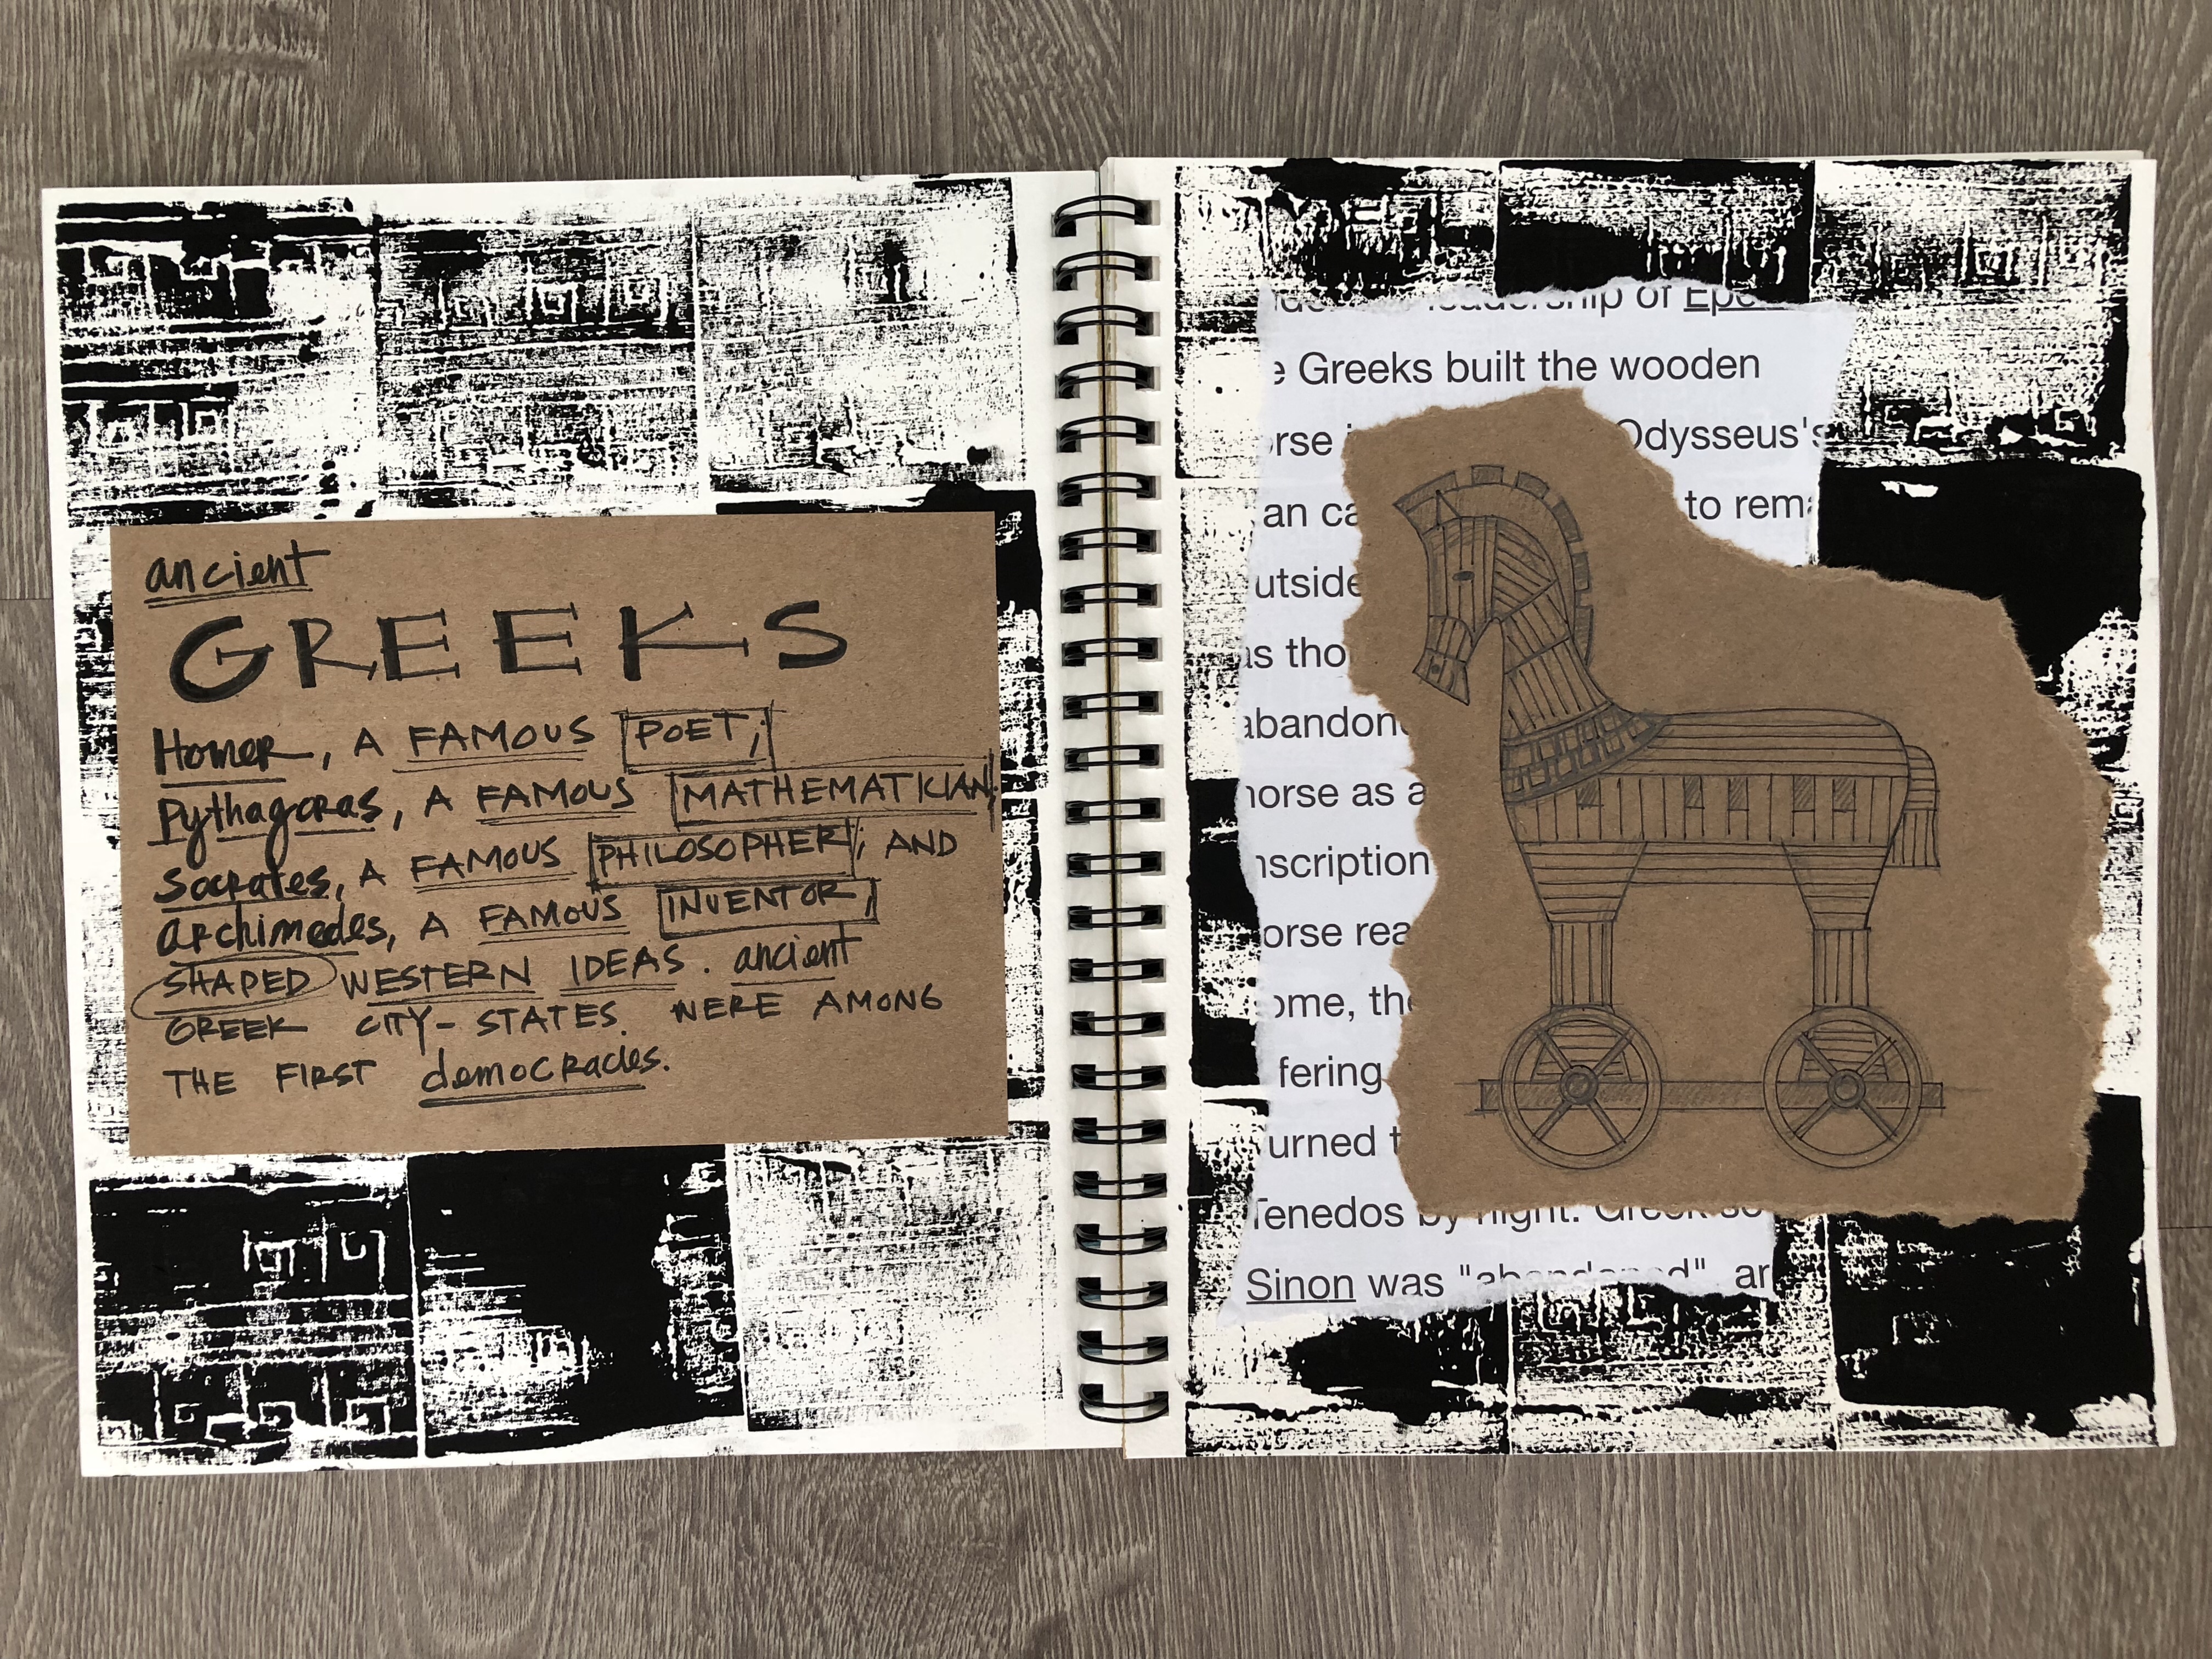 ancient
GREEKS
Homer, A FAMOUS POET;
Pythagoras, A FAMOUS MATHEMATICIAN;
Socrates, A FAMOUS PHILOSOPHER; AND
Archimedes, A FAMOUS INVENTOR,
SHAPED WESTERN IDEAS. ancient
GREEK CITY-STATES. WERE AMONG
THE FIRST democracies.
leadership of
e Greeks built the wooden
orse Odysseus's
an ca to rema
utside
as tho
abandon
horse as a
nscription
orse rea
ome, the
fering
urned t
Tenedos by night. Greek so
Sinon was "abandoned", ar